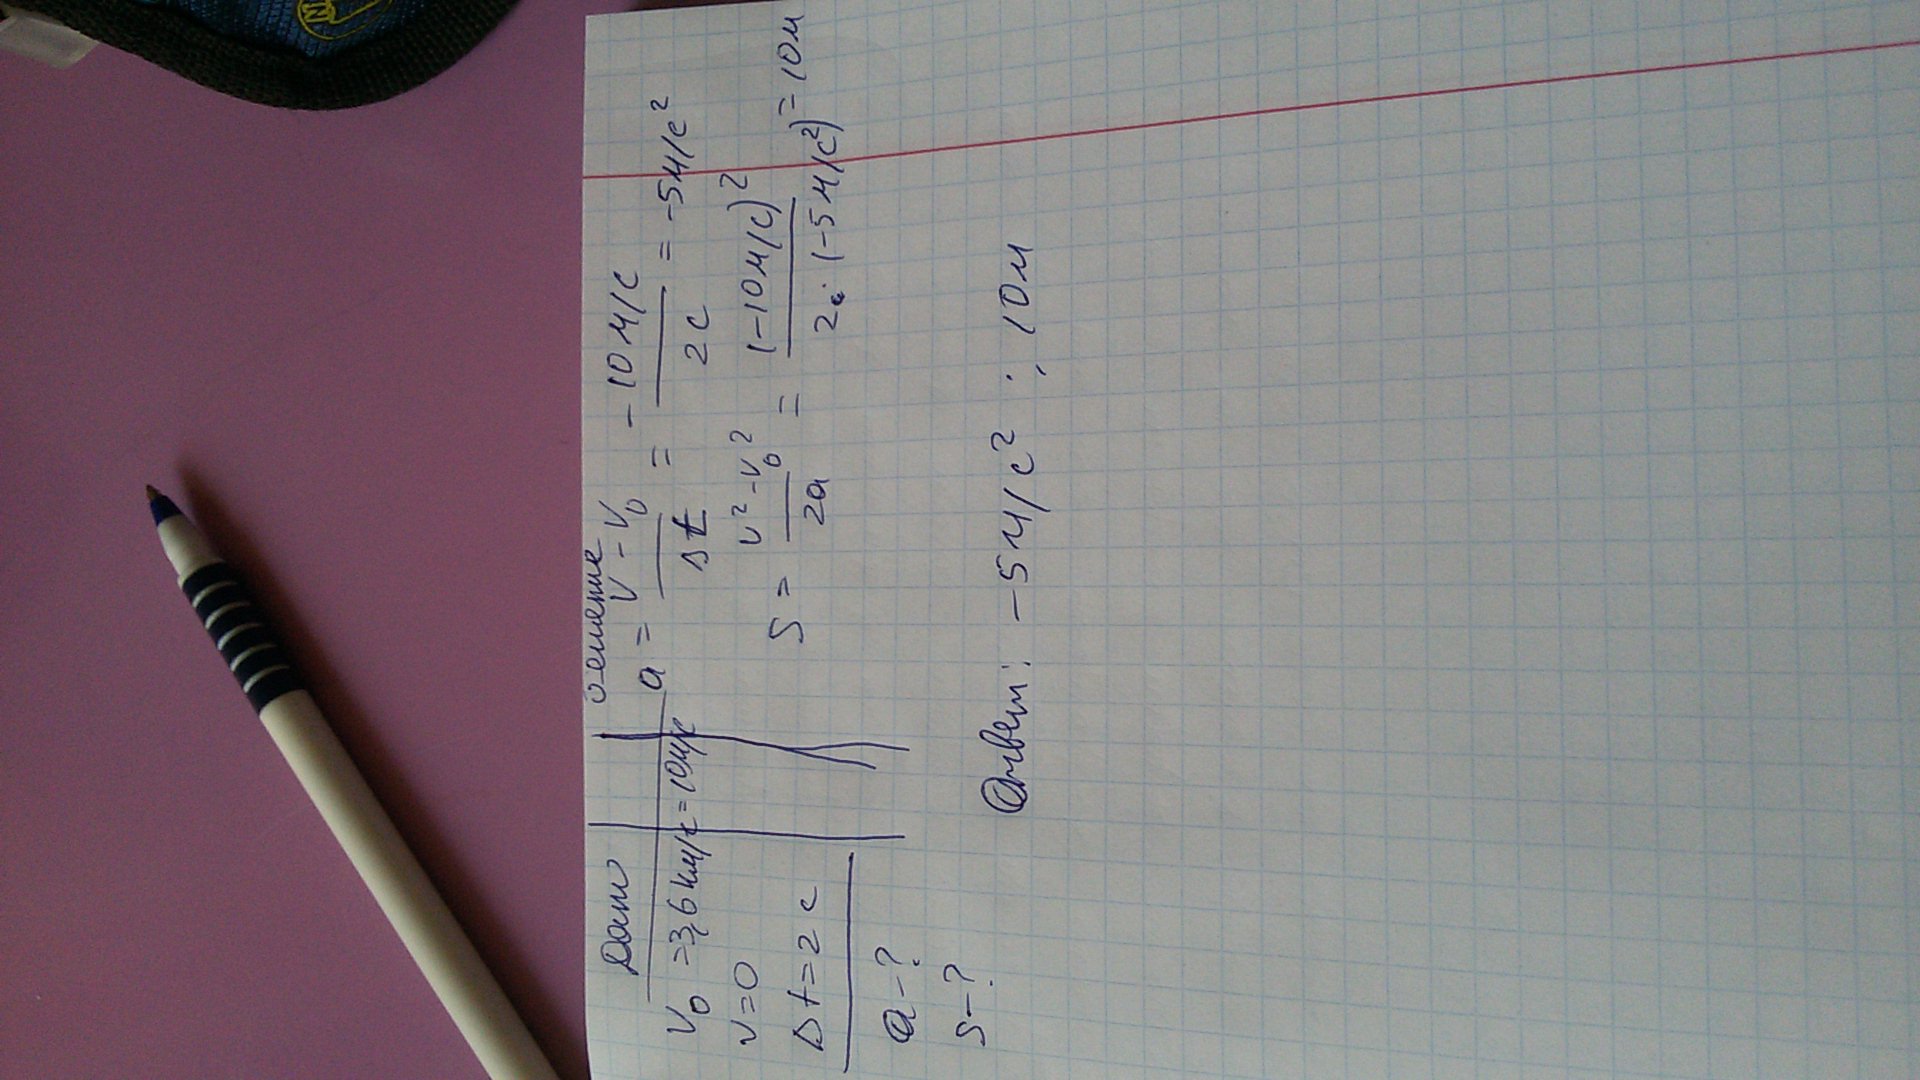 Дано
V₀ = 3,6 км/с = 10м/с
v=0
Δt=2 с
a-?
S-?
Решение
a = (V - V₀)/Δt = -10м/с / 2с = -5м/с²
S = (v² - v₀²)/2a = (-10м/с)² / 2·(-5м/с²) = 10м
Ответ: -5м/с² ; 10м